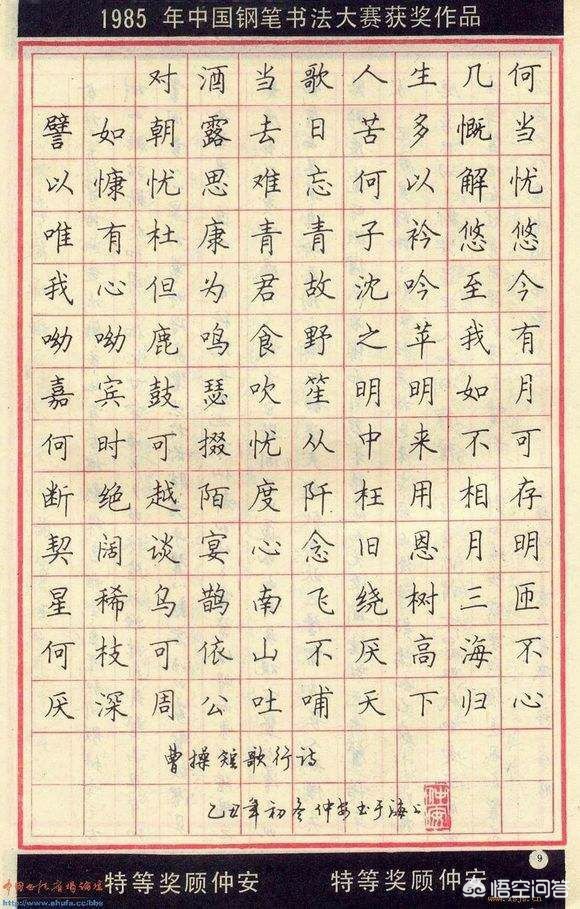 1985 年中国钢笔书法大赛获奖作品
对酒当歌人生几何
譬如朝露去日苦多慨当
以慷忧思难忘何以解忧
唯有杜康青青子衿悠悠
我心但为君故沈吟至今
呦呦鹿鸣食野之苹我有
嘉宾鼓瑟吹笙明明如月
何时可掇忧从中来不可
断绝越陌度阡枉用相存
契阔谈宴心念旧恩月明
星稀乌鹊南飞绕树三匝
何枝可依山不厌高海不
厌深周公吐哺天下归心
曹操短歌行诗
乙丑年初冬仲安书于海上
仲安
9
特等奖顾仲安 特等奖顾仲安
中国书法育播论坛
http://www.shufa.cc/bbs
悟空问答